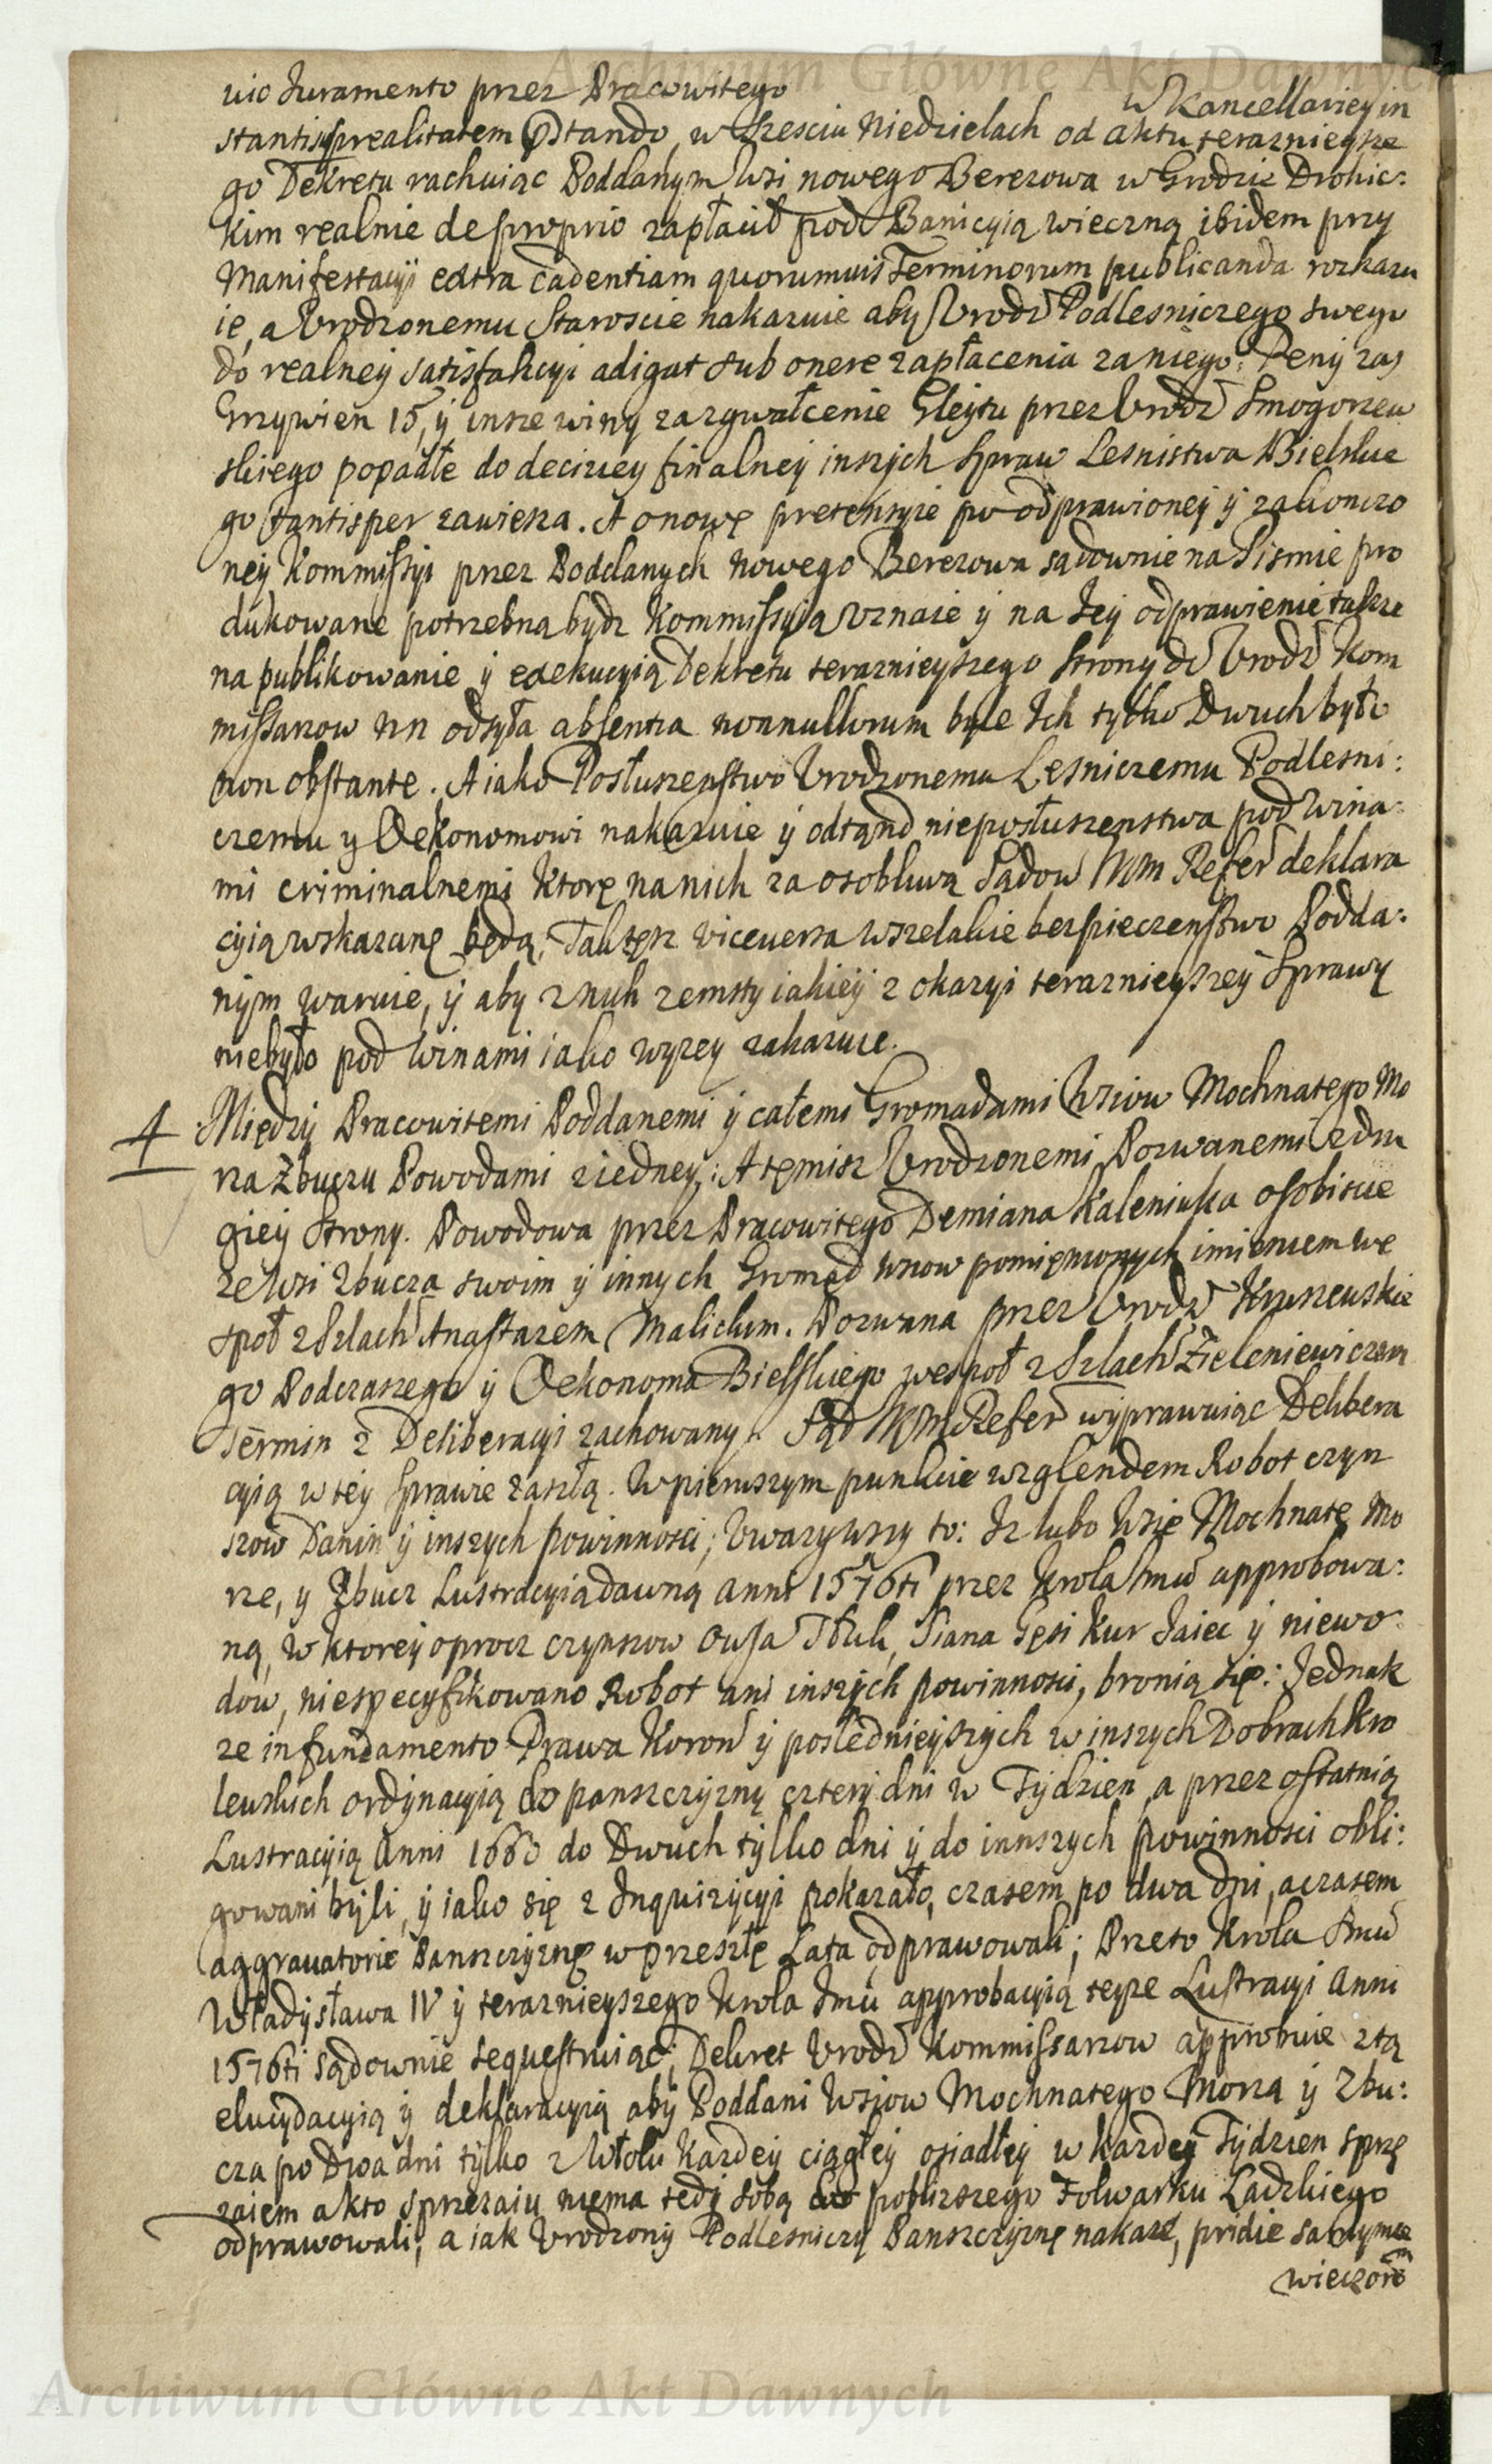 Archiwum Główne Akt Dawnych
uio Juramento przez Pracowitego w Kancellariey in
stantis realitatem Pstando, w Szesciu Niedzielach od aktu terazniejsze
go Dekretu rachuiąc Poddanym Wsi nowego Berezowa w Grodzie Drohic:
kim realnie de proprio zapłacił pod Banicyią wieczną ibidem przy
Manifestacyi extra cadentiam quorumuis Terminorum publicanda rozkazu
ie, a Vrodzonemu Staroscie nakazuie aby Vrodz Podlesniczego swego
do realney satisfakcyi adigat sub onere zapłacenia za niego. Peny zas
Grzywien 15, y insze winy za zgwałcenie Gleytu przez Vrodz Smogorzew
skiego popadłe do deciziey finalney inszych Spraw Lesnistwa Bielskie
go tantisper zawiesza. A o nowe pretensyie po odprawioney y zakonczo
ney Kommissyi przez Poddanych nowego Berezowa sądownie na Pismie pro
dukowane potrzebną bydz Kommissyią Vznaie y na Jey odprawienie takze
na publikowanie y exekucyią Dekretu terazniejszego Strony do Vrodz Kom
missarzow nn odsyła absentia nonnullorum byle Ich tylko Dwuch było
non obstante. A iako Posłuszenstwo Vrodzonemu Lesniczemu Podlesni:
czemu y Oekonomowi nakazuie y odtąnd nieposłuszenstwa pod wina:
mi criminalnemi ktore na nich za osobliwą Sądow NM Refer deklara
cyią wskazane będą, Taktesz viceuersa wszelakie bespieczenstwo Podda:
nym waruie, y aby z nich zemsty iakiey z okazyi terazniejszey Sprawy
niebyło pod winami iako wyzey zakazuie.
4 Między Pracowitemi Poddanemi y całemi Gromadami Wsiow Mochnatego Mo
rza Zbuczu Powodami z iedney: A temisz Vrodzonemi Pozwanemi z dru
giey Strony. Powodowa przez Pracowitego Demiana Kaleniuka osobiscie
ze Wsi Zbucza swoim y innych Gromad Wsiow pomienionych imieniem we
społ z Szlach Anastazem Malickim. Pozwana przez Vrodz Kruszewskie
go Podczaszego y Oekonoma Bielskiego wespoł z Szlach Zieleniewiczem
Termin z Deliberacyi zachowany. Sąd NM Refer wyprawuiąc Delibera
cyią w tey Sprawie zaszłą. W pierwszym punkcie wzglendem Robot czyn
szow Danin y inszych powinnosci; Vwazywszy to: Iz lubo Wsie Mochnate Mo
rze, y Zbucz Lustracyią dawną Anni 1576ti przez Krola Jmci approbowa:
ną, w ktorey oprocz czynszow Owsa Siana Gęsi Kur Jaiec y niewo
dow, niespecyfikowano Robot ani inszych powinnosci, bronią się: Jednak
ze in fundamento Prawa Koron y poslednieyszych w inszych Dobrach Kro
lewskich ordynacyią do panszczyzny cztery dni w Tydzien, a przez ostatnią
Lustracyią Anni 1660 do Dwuch tylko dni y do innszych powinnosci obli:
gowani byli, y iako się z Inquizycyi pokazało, czasem po dwa dni, a czasem
aggrauatorie Panszczyznę w przeszłe Lata odprawowali; Przeto Krola Jmci
Władysława IV y terazniejszego Krola Jmci approbacyią teyze Lustracyi Anni
1576ti sądownie sequestruiąc, Dekret Vrodz Kommissarzow approbuie z tą
elucydacyią y deklaracyią aby Poddani Wsiow Mochnatego Morza y Zbu:
cza po Dwa dni tylko z Włoki kazdey ciągłey osiadłey w kazdey Tydzien sprzę
zaiem a kto sprzezaiu niema tedy sobą do poblizszego Folwarku Ladzkiego
odprawowali; a iak Vrodzony Podlesniczy Panszczyznę nakaze, pridie samym
wieczorem
Archiwum Główne Akt Dawnych